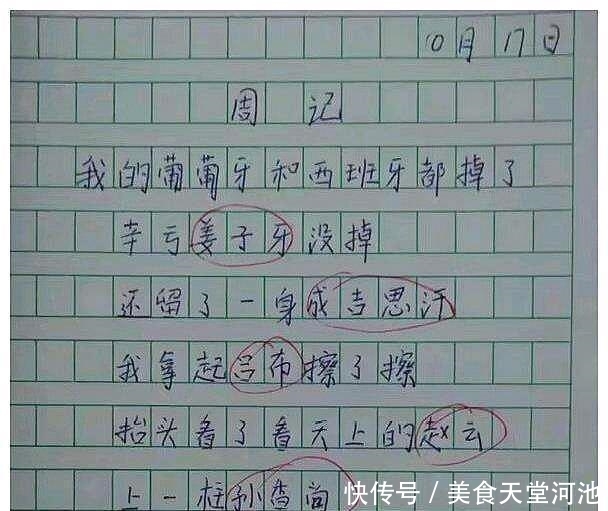 10月17日
周记
我的葡葡牙和西班牙都掉了
辛亏姜子牙没掉
还留了一身成吉思汗
我拿起吕布擦了擦
抬头看了看天上的赵云
上一柱孙香尚
快传号/美食天堂河池